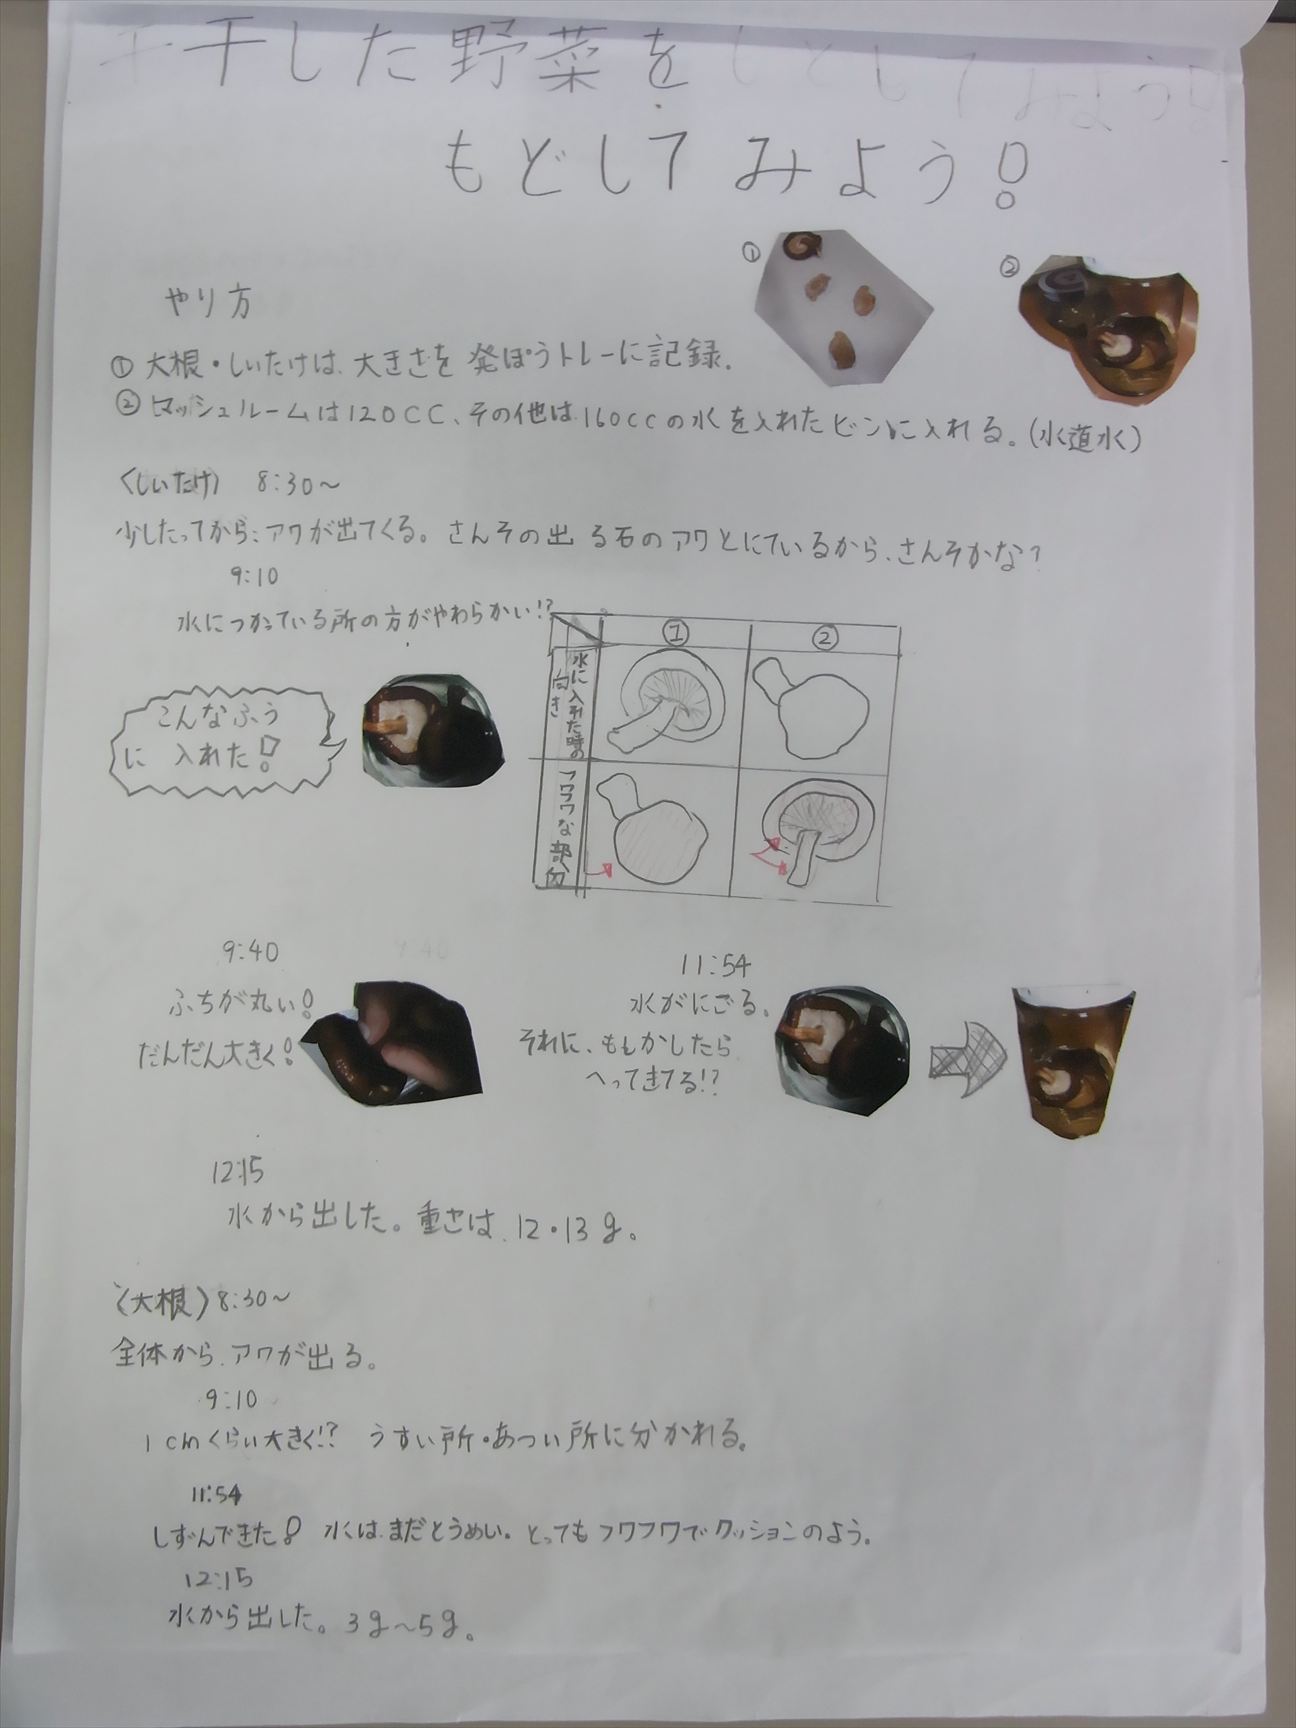 干した野菜を
もどしてみよう!
①
②
やり方
①大根・しいたけは、大きさを発ぽうトレーに記録.
②マッシュルームは120CC、その他は160ccの水を入れたビンに入れる。(水道水)
〈しいたけ〉 8:30~
少したってから、アワが出てくる。さんその出る石のアワとにているから、さんそかな?
9:10
水につかっている所の方がやわらかい!?
① ②
水に入れた時の向き
フワフワな部分
こんなふう
に入れた!
9:40
ふちが丸い!
だんだん大きく!
11:54
水がにごる。
それに、もしかしたら
へってきてる!?
12:15
水から出した。重さは、12・13g。
〈大根〉8:30~
全体から、アワが出る。
9:10
1cmくらい大きく!? うすい所・あつい所に分かれる。
11:54
しずんできた! 水は、まだとうめい。とってもフワフワでクッションのよう。
12:15
水から出した。3g~5g。